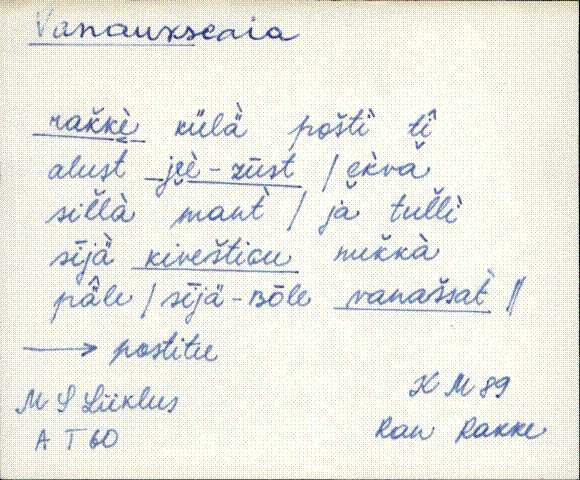 Vanaukseaia
rakkè külà poštì tî
alust jeè-züst / ekvà
sillà mantˋ / jà tullì
sījà kiveštiou nukkà
pâle / sījä-nōle vanaššatˋ //
→ postitee
M S Liiklus
A T 60
K M 89
Ran Rakke